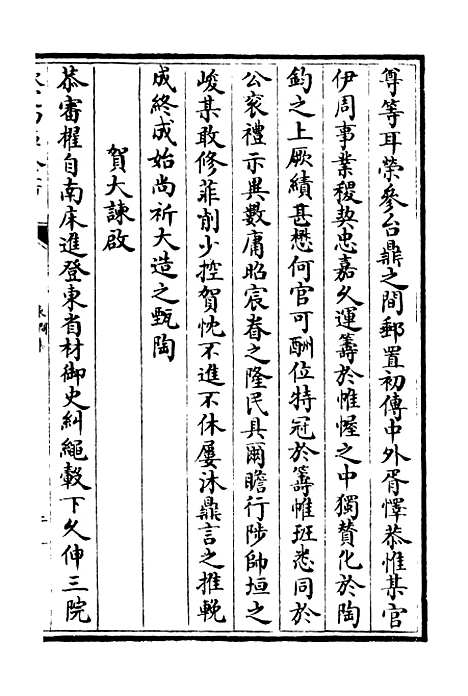 尊等耳榮參台鼎之間郵置初傳中外胥懌恭惟某官
伊周事業稷契忠嘉久運籌於帷幄之中獨贊化於陶
鈞之上厥績甚懋何官可酬位特冠於籌帷班悉同於
公衮禮示異數庸昭宸眷之隆民具爾瞻行陟帥垣之
峻某敢修菲削少控賀忱不進不休屢沐鼎言之推輓
成終成始尚祈大造之甄陶
賀大諫啟
恭審擢自南床進登東省材御史糾繩轂下久伸三院